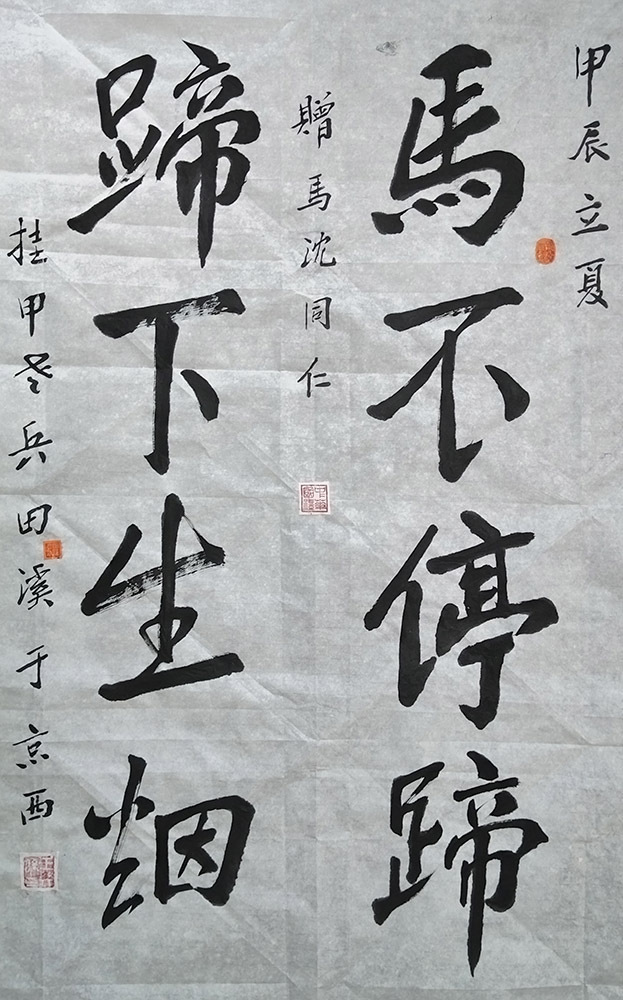 甲辰立夏
馬不停蹄
贈馬沈同仁
蹄下生烟
挂甲老兵田溪于京西